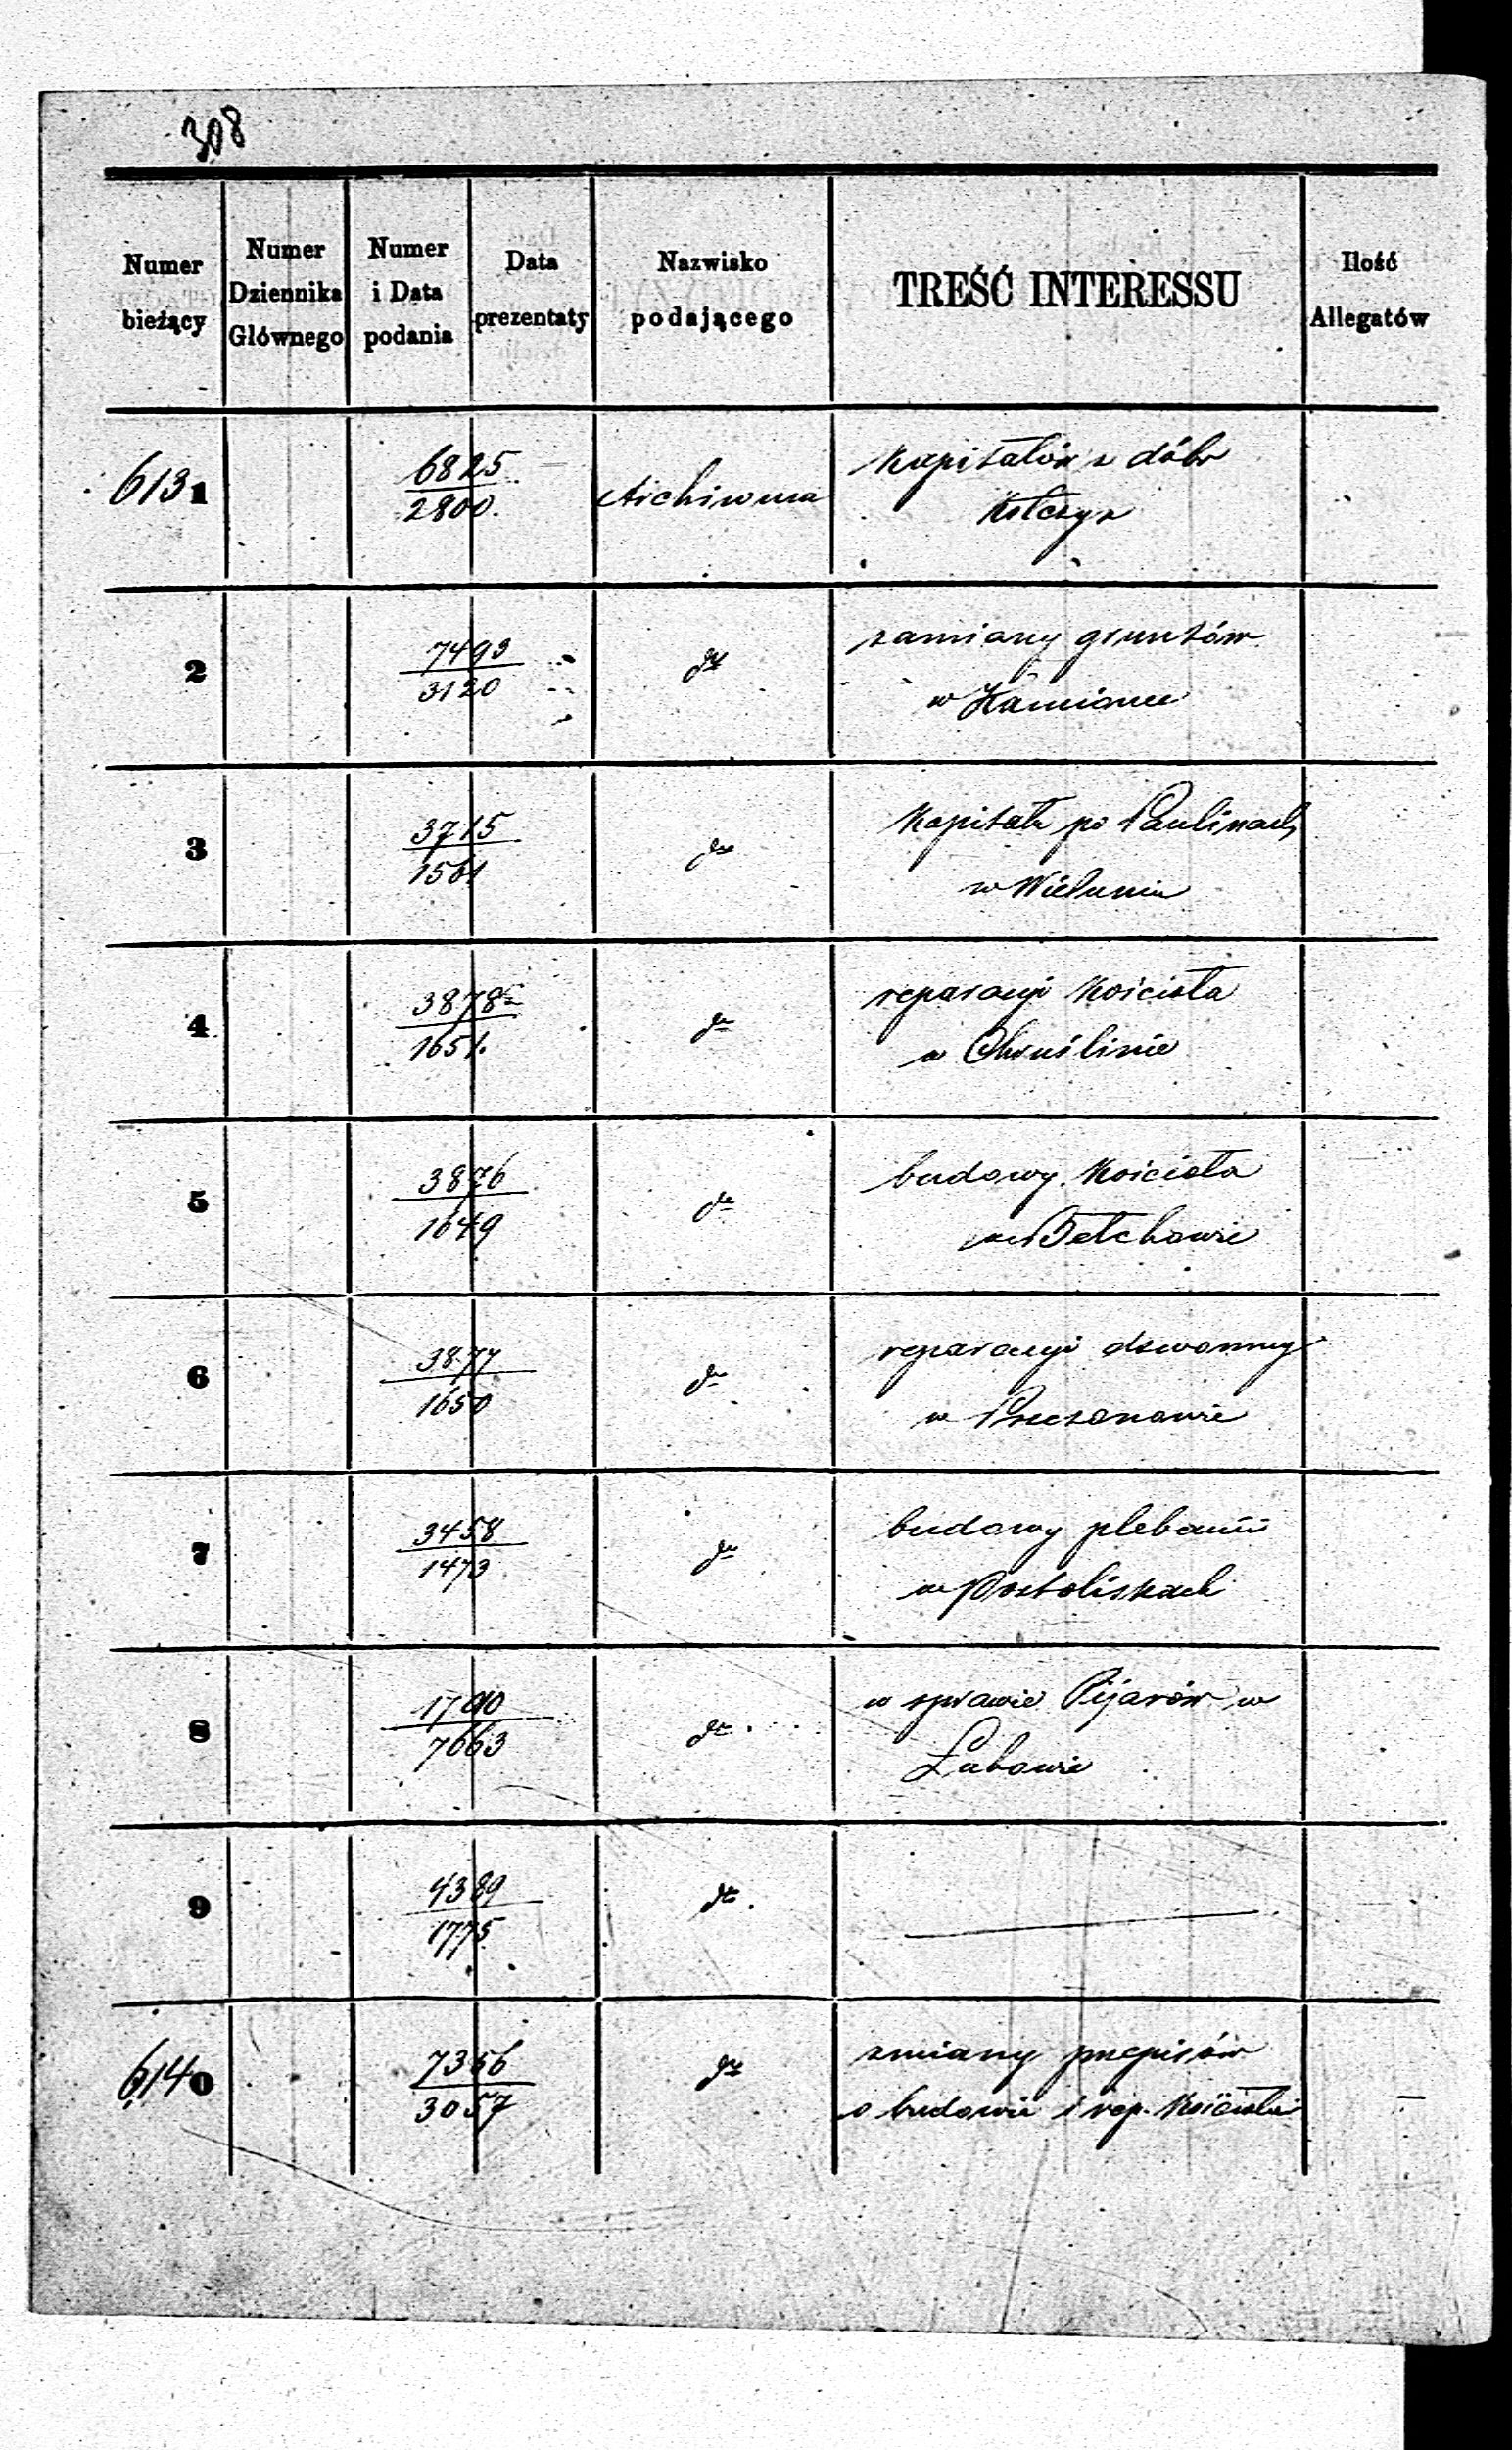 308
Numer bieżący
Numer Dziennika Głównego
Numer i Data podania
Data prezentaty
Nazwisko podającego
TREŚĆ INTERESSU
Ilość Allegatów
6131
6825
2800.
Archiwum
Kapitałów z dóbr
2
7493
3120
dto
zamiany gruntów
w Kamionce
3
3715
1561
dto
Kapitału po Paulinach
w Wieluniu
4
3878
1651.
dto
reparacyi Kościoła
w Chruślinie
5
3876
1649
dto
budowy Kościoła
w Bełchowie
6
3877
1650
dto
reparacyi dzwonnicy
w
7
3458
1473
dto
budowy plebanii
w Postoliskach
8
1790
7663
dto
w sprawie Pijarów w
Łukowie
9
4389
1775
dto.
6140
7356
3057
dto
zmiany przepisów
o budowie i rep. Kościoła